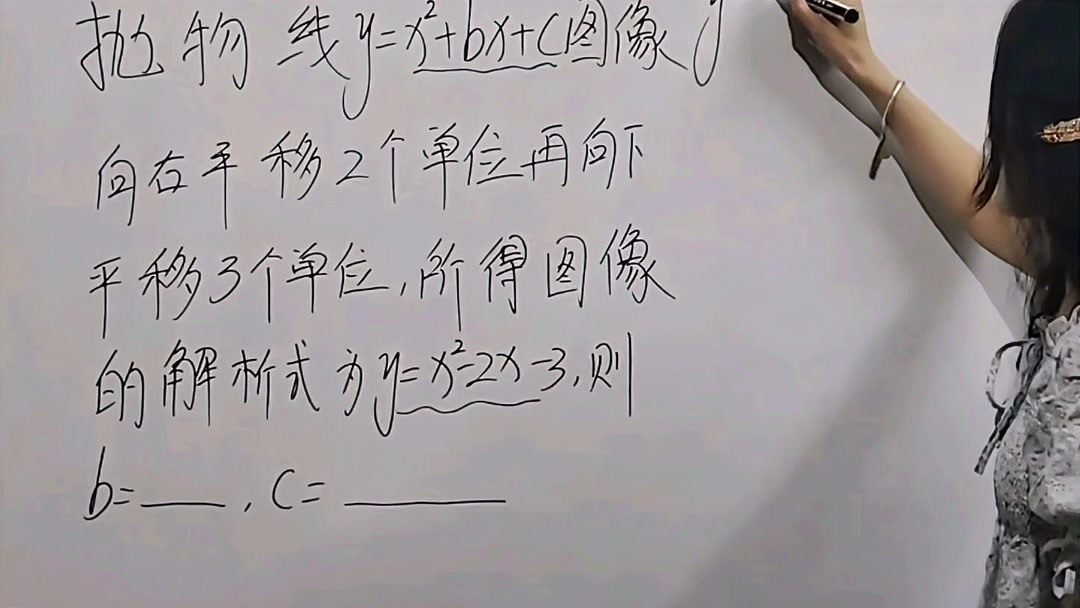 抛物线y=x²+bx+c图像 y
向右平移2个单位再向下
平移3个单位,所得图像
的解析式为y=x²-2x-3,则
b=___,c=_____